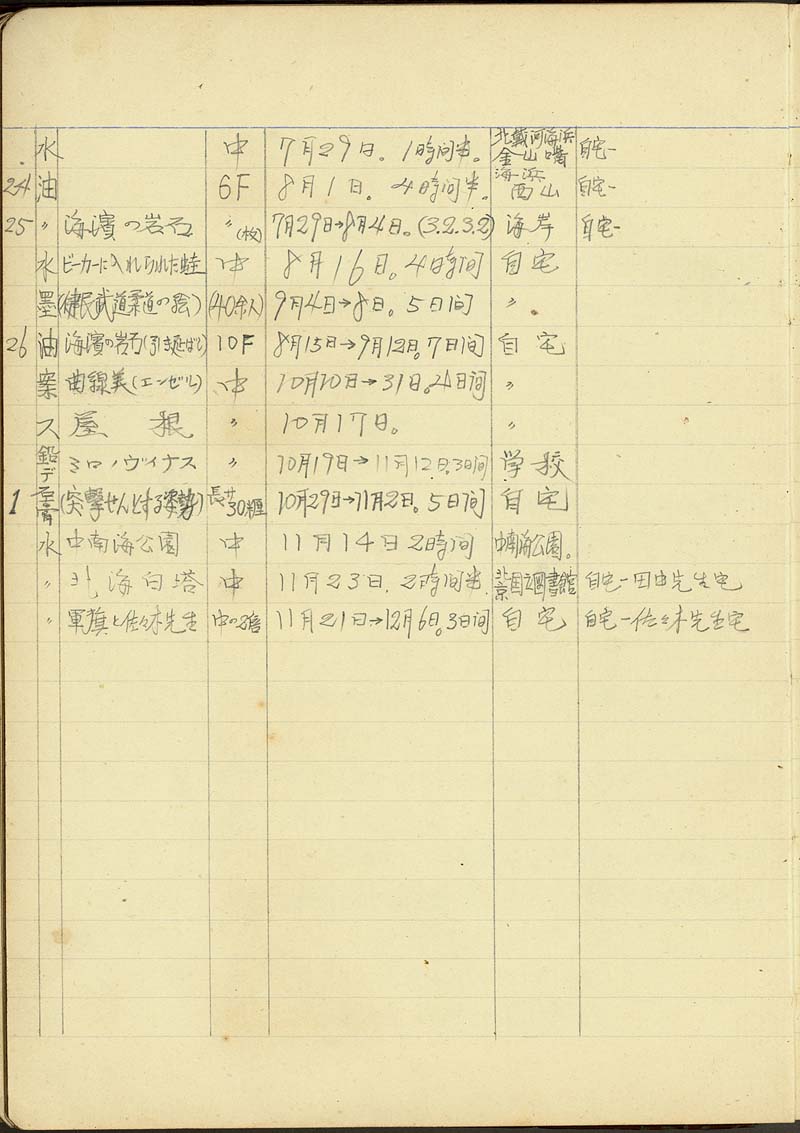 水 中 7月29日。1時間半。 北戴河海浜金山嘴 自宅ー
24 油 6F 8月1日。4時間半。 海浜西山 自宅ー
25 〃 海濱の岩石 〃(枚) 7月29日→8月4日。(3.2.3.2) 海岸 自宅ー
水 ビーカーに入れられた蛙 中 8月16日。4時間 自宅
墨 (健民武道柔道の絵) (40余人) 9月4日→8日。5日间 〃
26 油 海濱の岩石(引き延ばし) 10F 8月15日→9月12日。7日間 自宅
案 曲線美(エンゼル) 中 10月10日→31日。4日间 〃
ス 屋根 〃 10月17日。 〃
鉛デ ミロノヴィナス 〃 10月19日→11月12日。3日间 学校
1 石膏 (突撃せんとする姿勢) 長サ30糎 10月29日→11月2日。5日间 自宅
水 中南海公園 中 11月14日 2時间 中南海公園。
〃 北海白塔 中 11月23日。2時间半。 北京国立図書館 自宅ー田中先生宅
〃 軍旗と佐々木先生 中の2倍 11月21日→12月6日。3日间 自宅 自宅ー佐々木先生宅